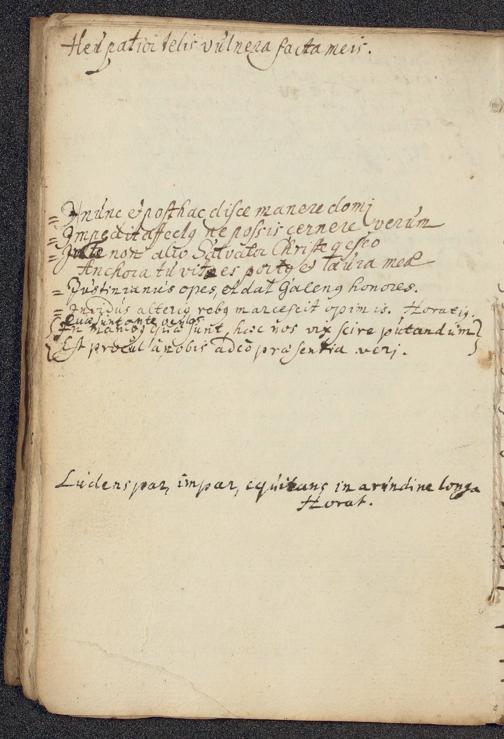 Heu patior telis vulnera facta meis.
= I nunc et posthac disce manere domi
= Impedit affectus ne possis cernere verum
= In te non alio Salvator Christe quiesco
Anchora tu vitæ es portus et aura meæ
= Justinianus opes, et dat Galenus honores.
= Invidus alterius rebus marcescit opimis. Horatius.
Quæ sunt ante oculos
In manibus quæ sunt, hæc nos vix scire putandum
Est procul a nobis adeo præsentia veri.
Ludens par, impar, equitans in arundine longa
Horat.